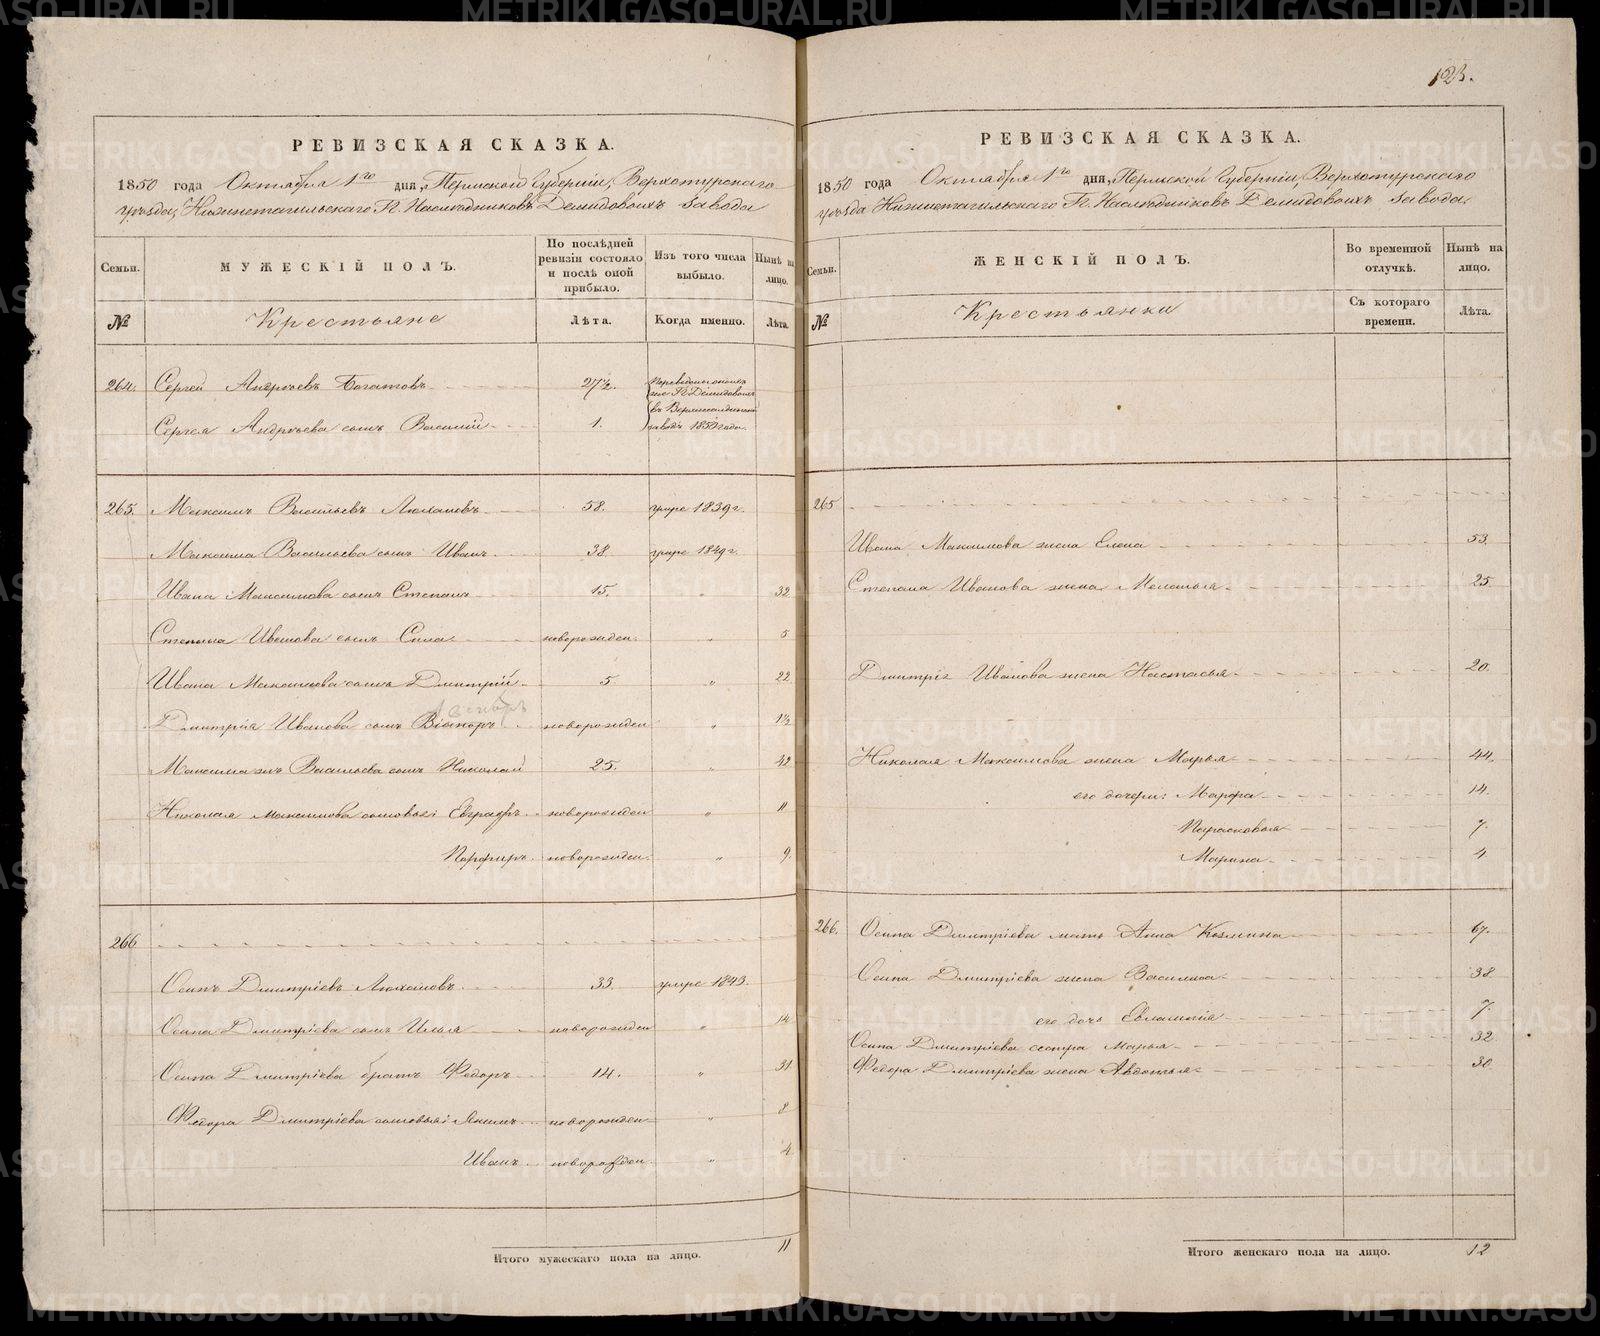 123.
РЕВИЗСКАЯ СКАЗКА.
1850 года Октября 1го дня, Пермской Губерніи, Верхотурскаго
уѣзда, Нижнетагильскаго Гг. Наслѣдниковъ Демидовыхъ завода
Семьи.
МУЖЕСКІЙ ПОЛЪ.
По послѣдней ревизіи состояло и послѣ оной прибыло.
Изъ того числа выбыло.
Нынѣ на лицо.
№
Крестьяне
Лѣта.
Когда именно.
Лѣта.
264. Сергей Андреевъ Богатовъ 27½.
Сергея Андреева сынъ Василий 1.
заводъ 1850 года.
265. Максимъ Васильевъ Люхановъ 58. умре 1839 г.
Максима Васильева сынъ Иванъ 38. умре 1849 г.
Ивана Максимова сынъ Степанъ 15. " 32
Степана Иванова сынъ Сила новорожден. " 5
Ивана Максимова сынъ Дмитрій 5 " 22
Дмитрія Иванова сынъ новорожден " 1½
Максима Васильева сынъ Николай 25. " 42
Николая Максимова сыновья: Евграфъ новорожден " 11
Порфиръ новорожден. " 9.
266
Осипъ Дмитріевъ Люхановъ 33. умре 1843.
Осипа Дмитріева сынъ Илья новорожден " 14
Осипа Дмитріева братъ Федоръ 14. " 31
Федора Дмитріева сыновья: Якимъ новорожден " 8
Иванъ новорожден " 4
Итого мужескаго пола на лицо. 11
РЕВИЗСКАЯ СКАЗКА.
1850 года Октября 1го дня, Пермской Губерніи, Верхотурскаго
уѣзда Нижнетагильскаго Гг. Наслѣдниковъ Демидовыхъ завода.
Семьи.
ЖЕНСКІЙ ПОЛЪ.
Во временной отлучкѣ.
Нынѣ на лицо.
№
Крестьянки
Съ котораго времени.
Лѣта.
265
Ивана Максимова жена Елена 53.
Степана Иванова жена Меланья 25
Дмитрія Иванова жена Настасья 20.
Николая Максимова жена Марья 44.
его дочери: Марфа 14.
Парасковья 7.
Марина 4.
266. Осипа Дмитріева мать Анна Козмина 67.
Осипа Дмитріева жена Василиса 38
его дочь Евлампія 7.
Осипа Дмитріева сестра Марья 32
Федора Дмитріева жена Авдотья 30
Итого женскаго пола на лицо. 12
METRIKI.GASO-URAL.RU